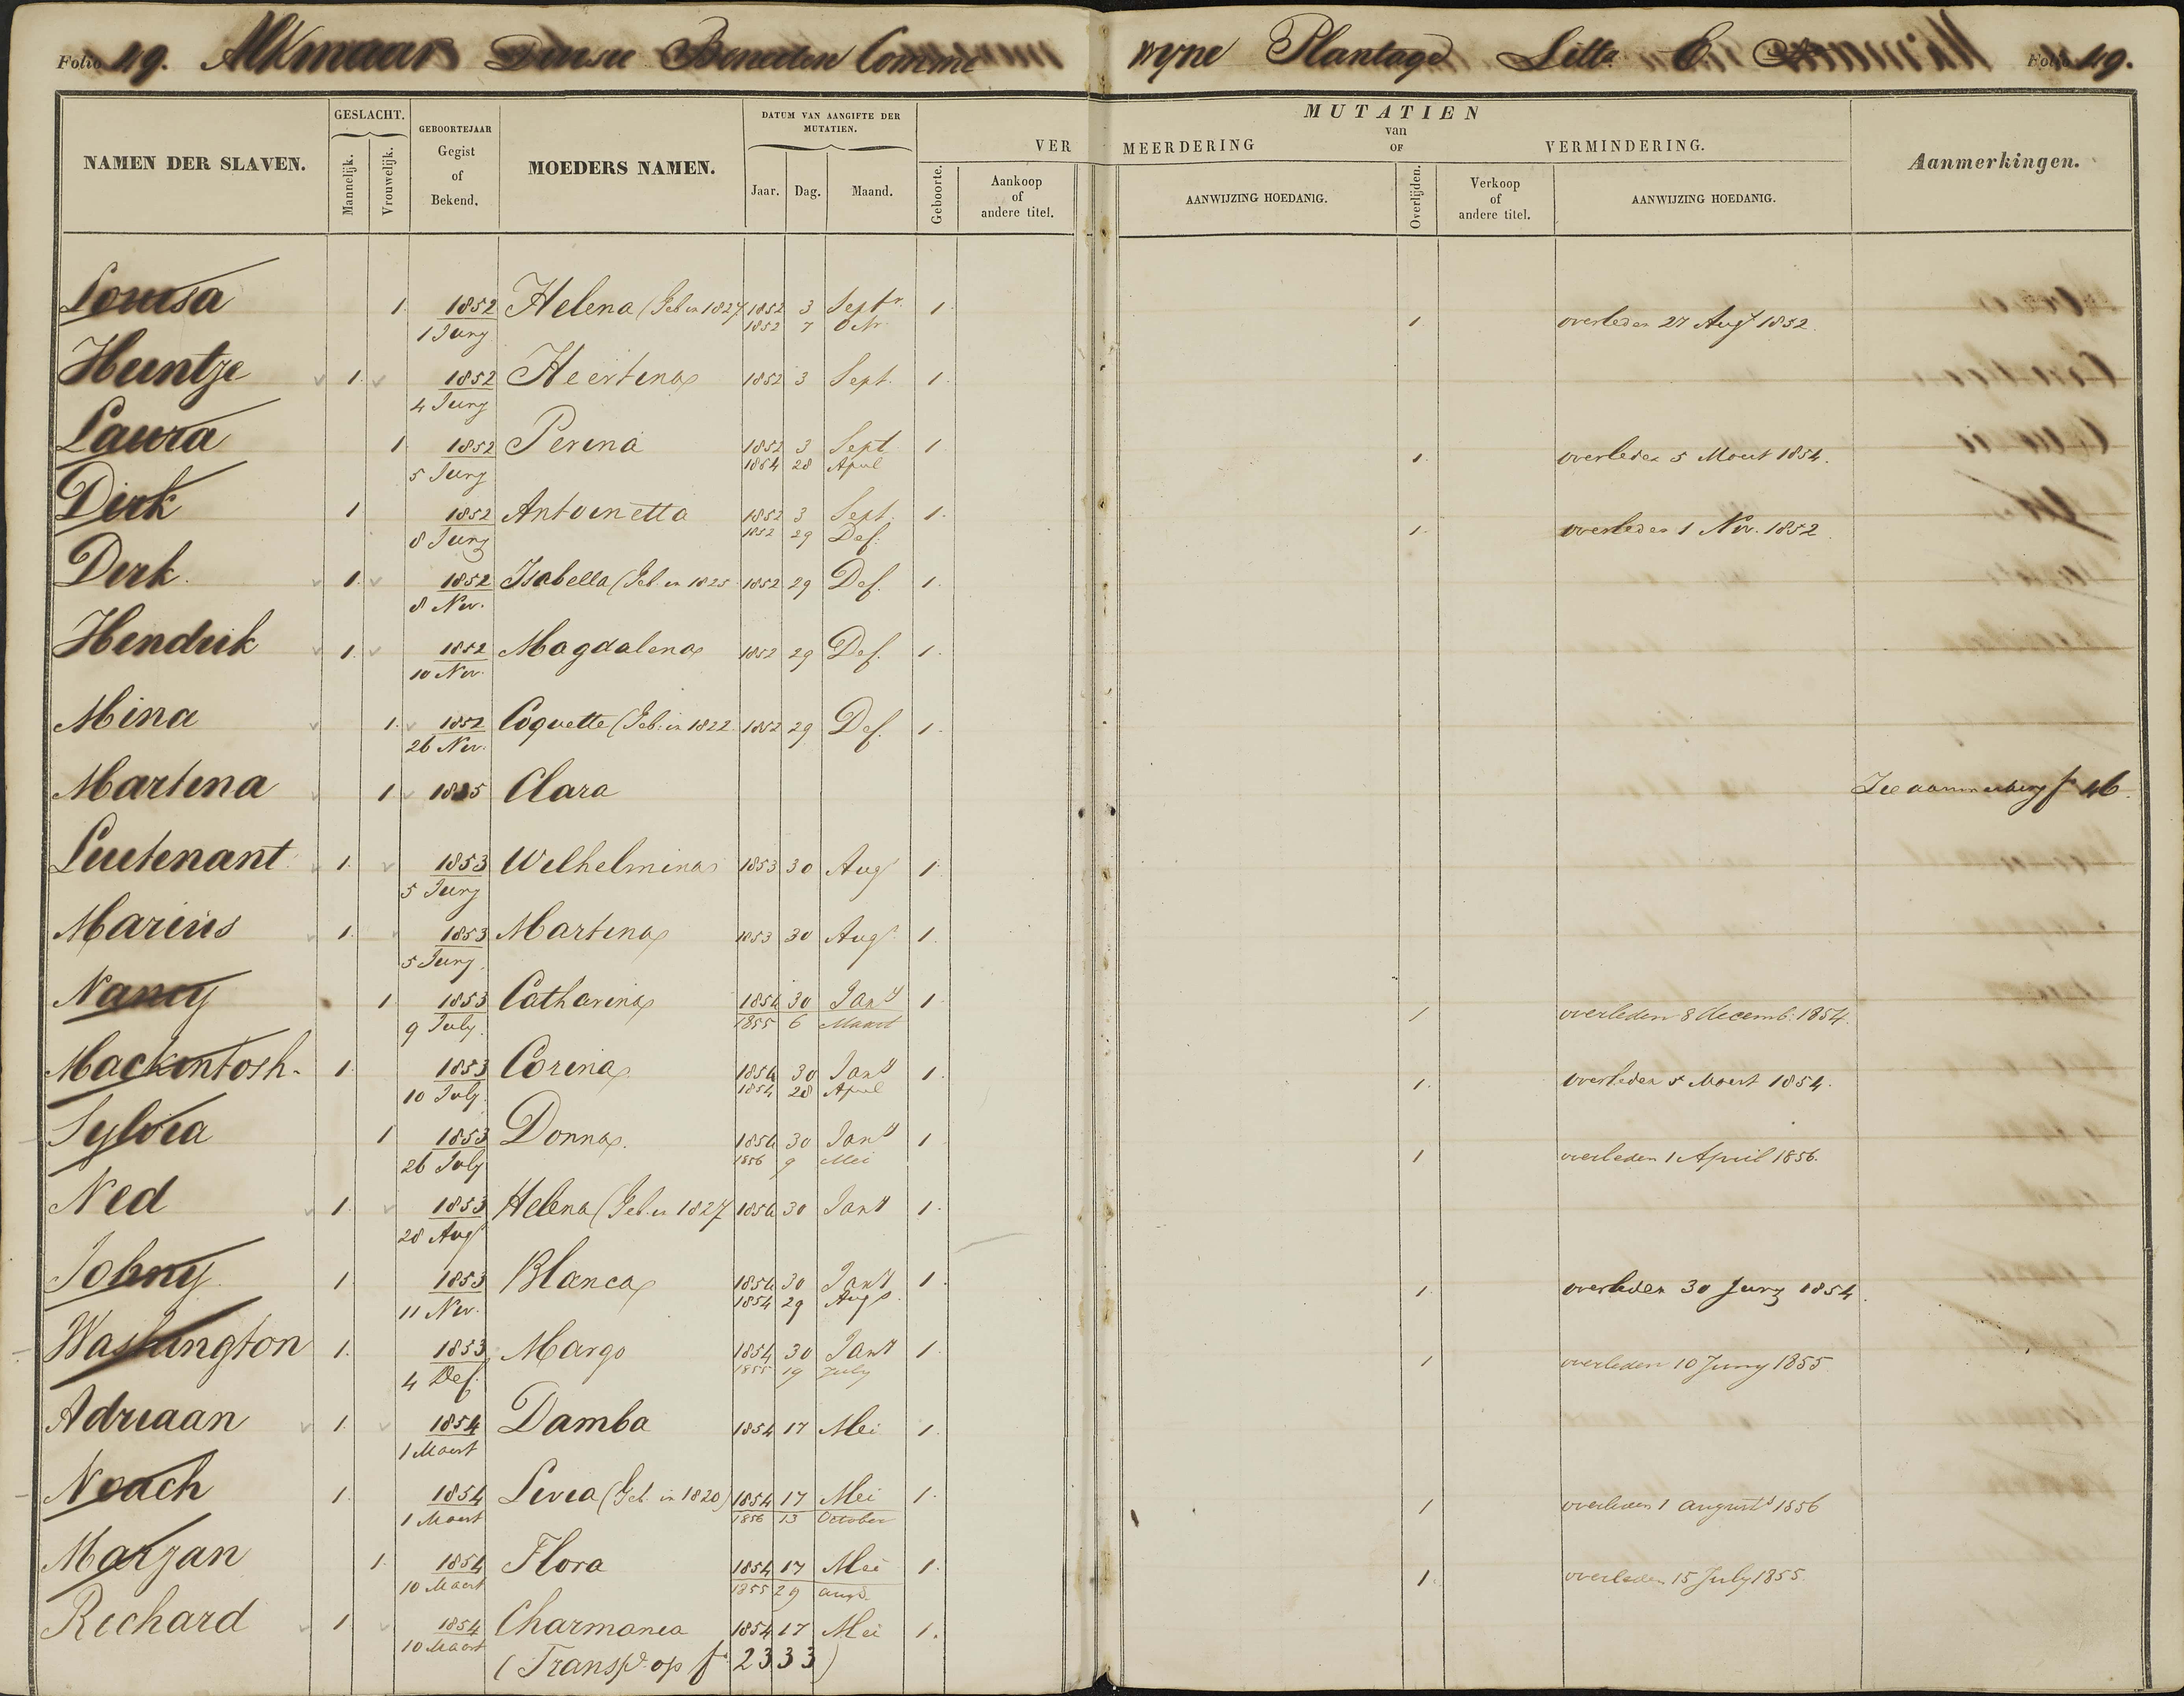 Folio 49. Alkmaar Divisie Beneden Comme wyne Plantage Litta E. Folio 49.
NAMEN DER SLAVEN. GESLACHT. Mannelijk. Vrouwelijk. GEBOORTEJAAR Gegist of Bekend. MOEDERS NAMEN. DATUM VAN AANGIFTE DER MUTATIEN. Jaar. Dag. Maand. MUTATIEN van VER MEERDERING OF VERMINDERING. Geboorte. Aankoop of andere titel. AANWIJZING HOEDANIG. Overlijden. Verkoop of andere titel. AANWIJZING HOEDANIG. Aanmerkingen.
Louisa 1. 1852 Helena (Geb in 1827 1852 3 Septr. 1.
1 Juny 1852 7 Octr 1. overleden 27 Augt 1852.
Heintje 1. 1852 Heertina 1852 3 Sept. 1.
4 Juny
Laura 1. 1852 Perina 1852 3 Sept 1.
5 Juny 1854 28 April 1. overleden 5 Maart 1854.
Dirk 1 1852 Antoinetta 1852 3 Sept. 1.
8 Juny 1852 29 Def. 1. overleden 1 Nov. 1852
Derk. 1. 1852 Isabella (Geb. in 1825 1852 29 Def. 1.
8 Nov.
Hendrik 1. 1852 Magdalena 1852 29 Def. 1.
10 Nov.
Mina 1. 1852 Coquette (Geb. in 1822. 1852 29 Def. 1.
26 Nov.
Martina 1. Clara Zie aanmerking f 46.
Luitenant 1. 1853 Wilhelmina 1853 30 Aug 1
5 Juny
Marius 1. 1853 Martina 1853 30 Aug 1.
5 Juny.
Nancy 1 1853 Catharina 1854 30 Jany 1
9 July. 1855 6 Maart 1 overleden 8 decemb. 1854.
Mackintosh. 1. 1853 Corina 1854 30 Jany 1.
10 July. 1854 28 April 1. overleden 5 Maart 1854.
Sylvia 1 1853 Donna. 1854 30 Jany 1
26 July 1856 9 Mei 1 overleden 1 April 1856.
Ned 1. 1853 Helena (Geb. in 1827 1854 30 Jany 1.
28 Aug
Johny 1. 1853 Blanca 1854 30 Jany 1.
11 Nov. 1854 29 Augs. 1. overleden 30 Juny 1854.
Washington 1. 1853 Margo 1854 30 Jany 1.
4 Def. 1855 19 July 1 overleden 10 Juny 1855.
Adriaan 1. 1854 Damba 1854 17 Mei 1.
1 Maart
Noach 1. 1854 Livia (Geb. in 1820) 1854 17 Mei 1.
1 Maart 1856 13 October 1 overleden 1 augusts 1856
Marjan 1. 1854 Flora 1854 17 Mei 1.
10 Maart 1855 29 augs. 1. overleden 15 July 1855.
Richard 1 1854 Charmania 1854 17 Mei 1.
10 Maart (Transpd. op f. 2333)